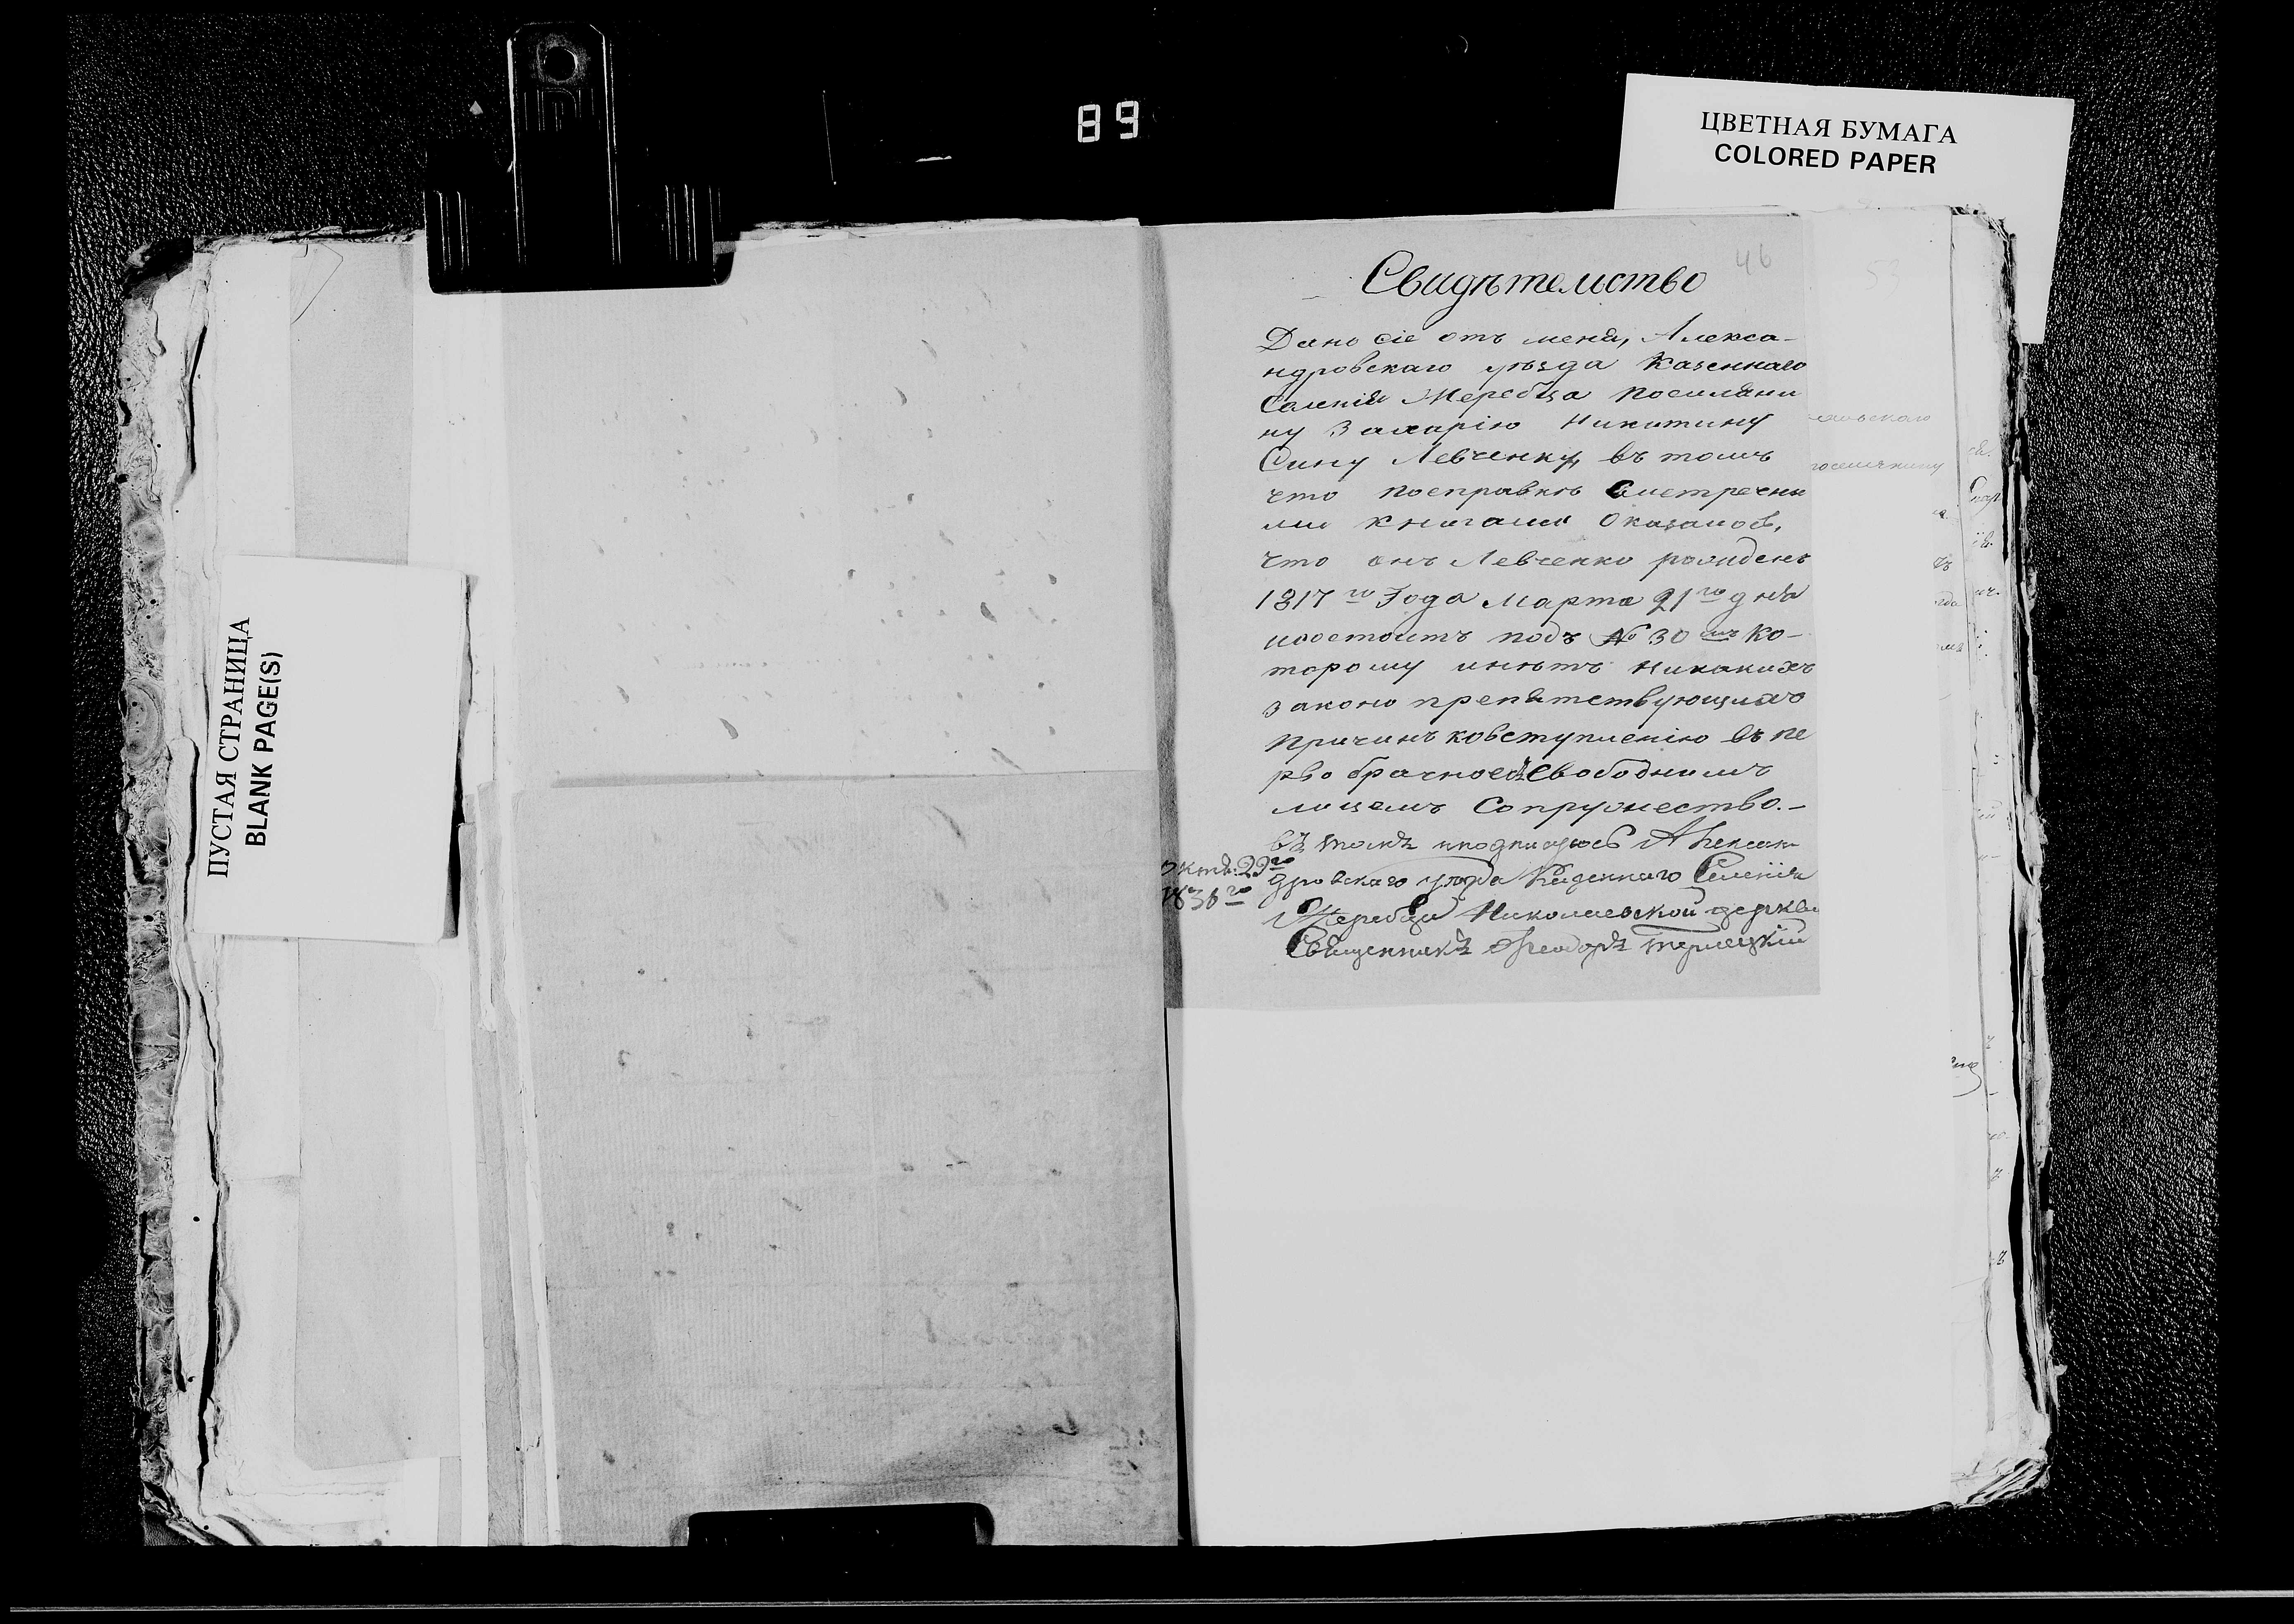 89
ЦВЕТНАЯ БУМАГА
COLORED PAPER
ПУСТАЯ СТРАНИЦА
BLANK PAGE(S)
46
53
Свидѣтельство
Дано сіе отъ меня, Алекса-
ндровскаго уѣзда Казеннаго
Селенія Жеребца поселяни
ну Захарію Никитину
Сину Левченку, въ томъ
что посправкѣ Сметречны
ми книгами Оказалось,
что онъ Левченко рожденъ
1817го Года Марта 21го дня
исостоитъ подъ № 30мъ Ко-
торому инѣтъ никакихъ
законо препятствующихъ
Причинъ ковступленію въ пе
рво брачноесъ Свободнимъ
лицемъ Сопружество.-
въ томъ иподписуюсь Алексан
дровскаго уѣзда Казеннаго Селенія
Жеребца Николаевской церкви
Священникъ Феодоръ Терлецкій
Октяб: 22го
1836го
поселянину